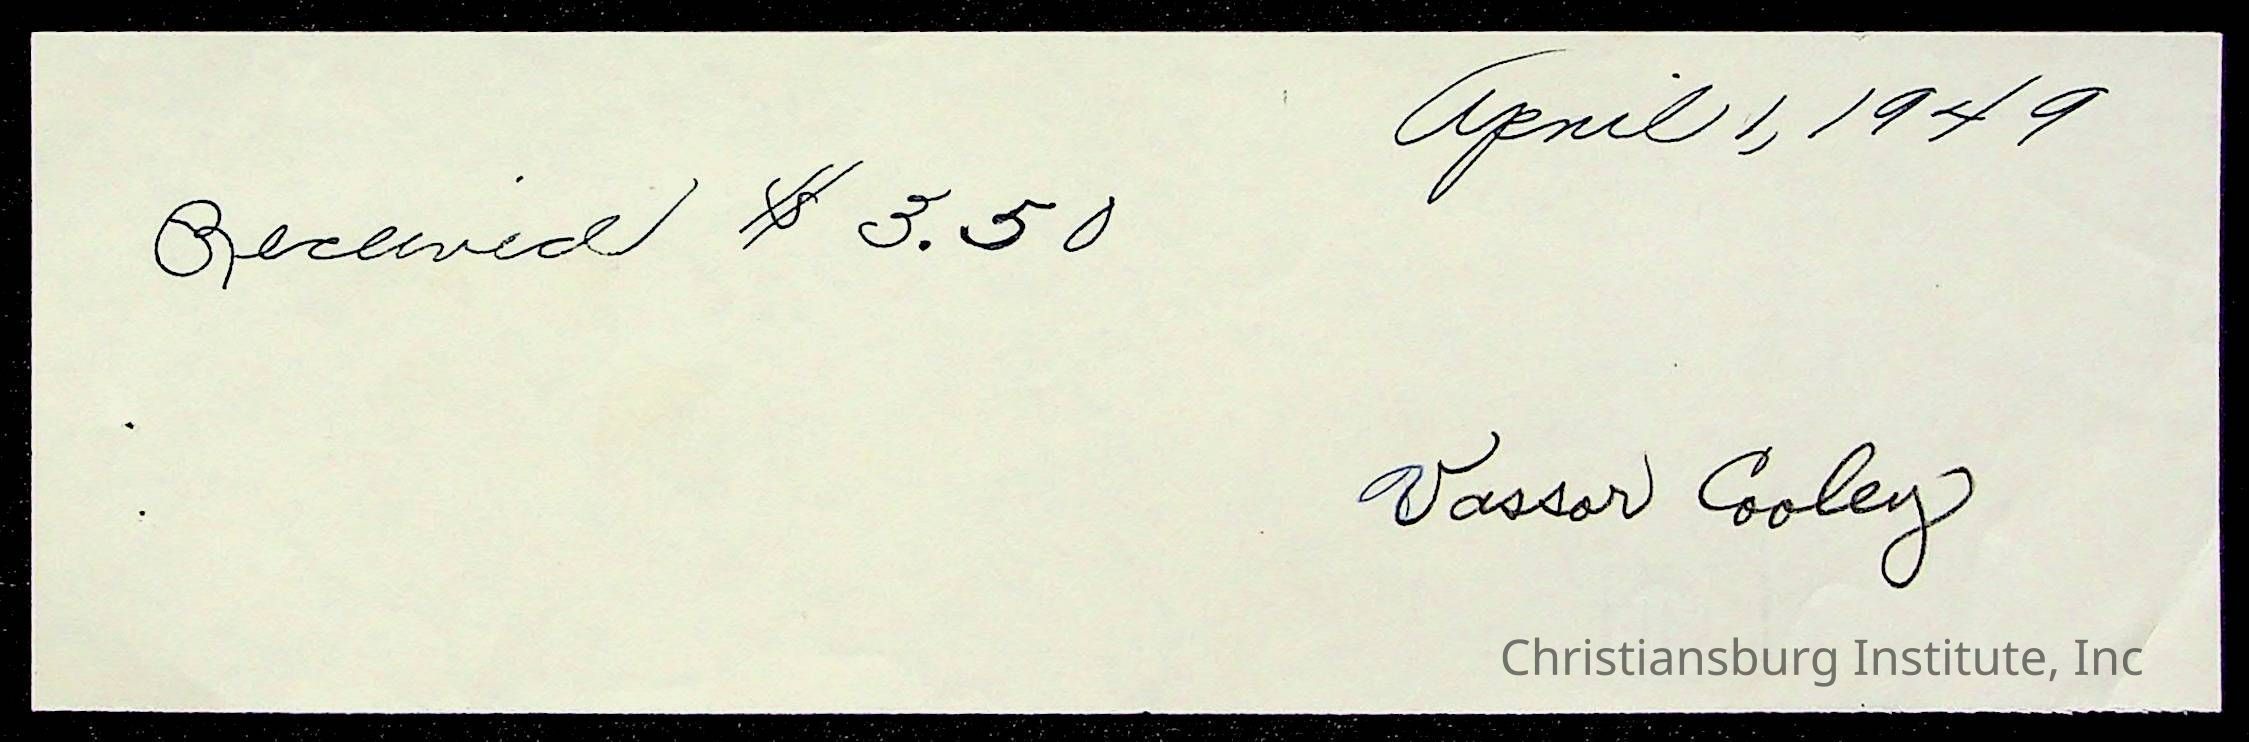 April 1, 1949
Received $ 3.50
Vassor Cooley
Christiansburg Institute, Inc